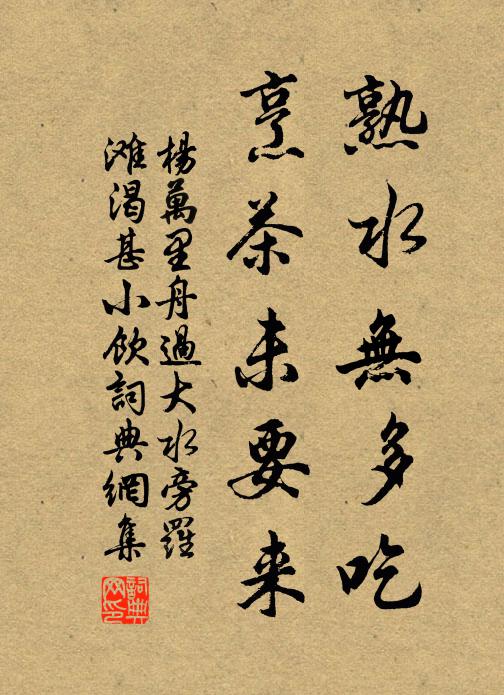 熟水無多吃
烹茶未要来
楊萬里舟過大水旁羅
滩渴甚小飲詞典網集
詞典网印